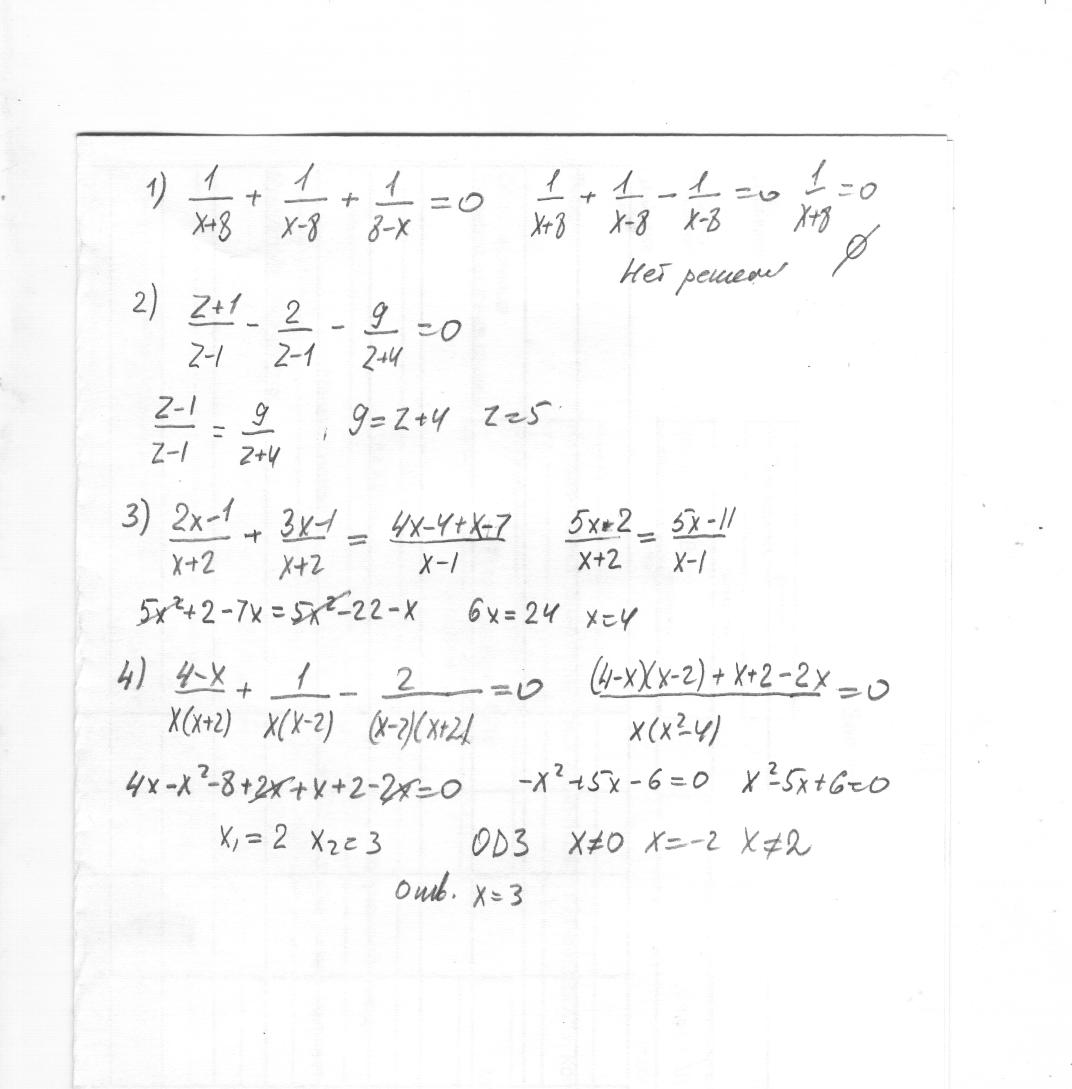 1) 1/(x+8) + 1/(x-8) + 1/(8-x) = 0   1/(x+8) + 1/(x-8) - 1/(x-8) = 0   1/(x+8) = 0
Нет решен   ∅
2) (z+1)/(z-1) - 2/(z-1) - 9/(z+4) = 0
(z-1)/(z-1) = 9/(z+4) , 9 = z+4   z = 5
3) (2x-1)/(x+2) + (3x-1)/(x+2) = (4x-4+x-7)/(x-1)   (5x-2)/(x+2) = (5x-11)/(x-1)
5x²+2-7x = 5x²-22-x   6x = 24   x = 4
4) (4-x)/(x(x+2)) + 1/(x(x-2)) - 2/((x-2)(x+2)) = 0   ((4-x)(x-2)+x+2-2x)/(x(x²-4)) = 0
4x-x²-8+2x+x+2-2x=0   -x²+5x-6=0   x²-5x+6=0
x₁=2   x₂=3   ОDЗ   x≠0   x=-2   x≠2
отв. x=3